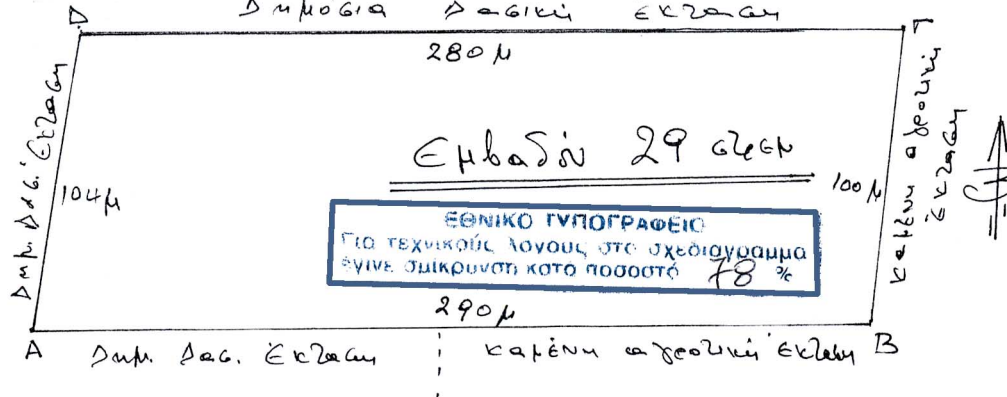 Δημόσια Δασική έκταση
Δ
Γ
280 μ
Δημ. Δασ. Έκταση
104 μ
Εμβαδόν 29 στρεμ
100 μ
καμένη αγροτική
έκταση
ΕΘΝΙΚΟ ΤΥΠΟΓΡΑΦΕΙΟ
Για τεχνικούς λόγους στο σχεδιάγραμμα
έγινε σμίκρυνση κατά ποσοστό 78 %
290 μ
Α Δημ. Δασ. Έκταση καμένη αγροτική Έκταση Β